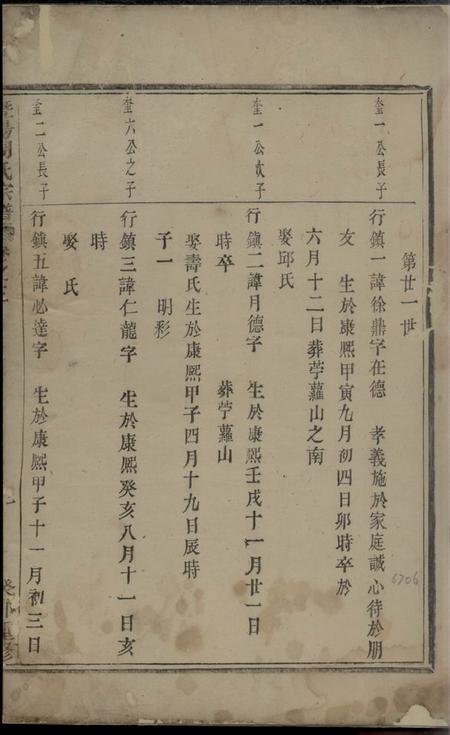 第廿一世
奎一公長子
行鎮一諱徐鼎字在德 孝義施於家庭誠心待於朋
友 生於康熙甲寅九月初四日卯時卒於
六月十二日葬苧蘿山之南
娶邱氏
奎一公次子
行鎮二諱月德字 生於康熙壬戌十一月廿一日
時卒 葬苧蘿山
娶壽氏生於康熙甲子四月十九日辰時
子一 明彩
奎六公之子
行鎮三諱仁龍字 生於康熙癸亥八月十一日亥
時
娶 氏
奎二公長子
行鎮五諱必達字 生於康熙甲子十一月初三日
暨陽周氏宗譜
6706